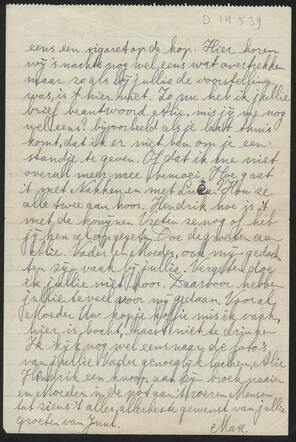 D. 14539
eens een sigaret op de kop. Hier horen
wij 's nachts nog wel eens wat overtrekken
maar zo als bij jullie de voorstelling
was, is 't hier niet. Zo nu heb ik jullie
brief beantwoord. Alie, mis jij me nog
wel eens? bijvoorbeeld als je laat thuis
komt, dat ik er niet ben om je een
standje te geven. Of dat ik me niet
overal meer mee bemoei. Hoe gaat
it met Nakken, en met Hou ze
alle twee aan hoor. Hendrik hoe is 't
met de konijnen. Vreten ze nog of heb
jij hen al opgegeten. Doe de groeten aan
Alie. Vader en Moeder, ook mijn gedach
ten zijn vaak bij jullie. Vergeten doe
ik jullie niet hoor. Daarvoor hebben
jullie te veel voor mij gedaan. Vooral
Moeder. Uw kopje koffie mis ik vaak,
hier, is bocht, haast niet te drinken
Ik kijk nog wel eens naar de foto's
van jullie. Vader genoeglijk lachen, Alie
Hendrik een knoop aan bij broek naaien
en Moeder in de pot aan 't roeren. Mensen
tot ziens 't aller, allerbeste gewenst van jullie
groeten van Juul.
Max.